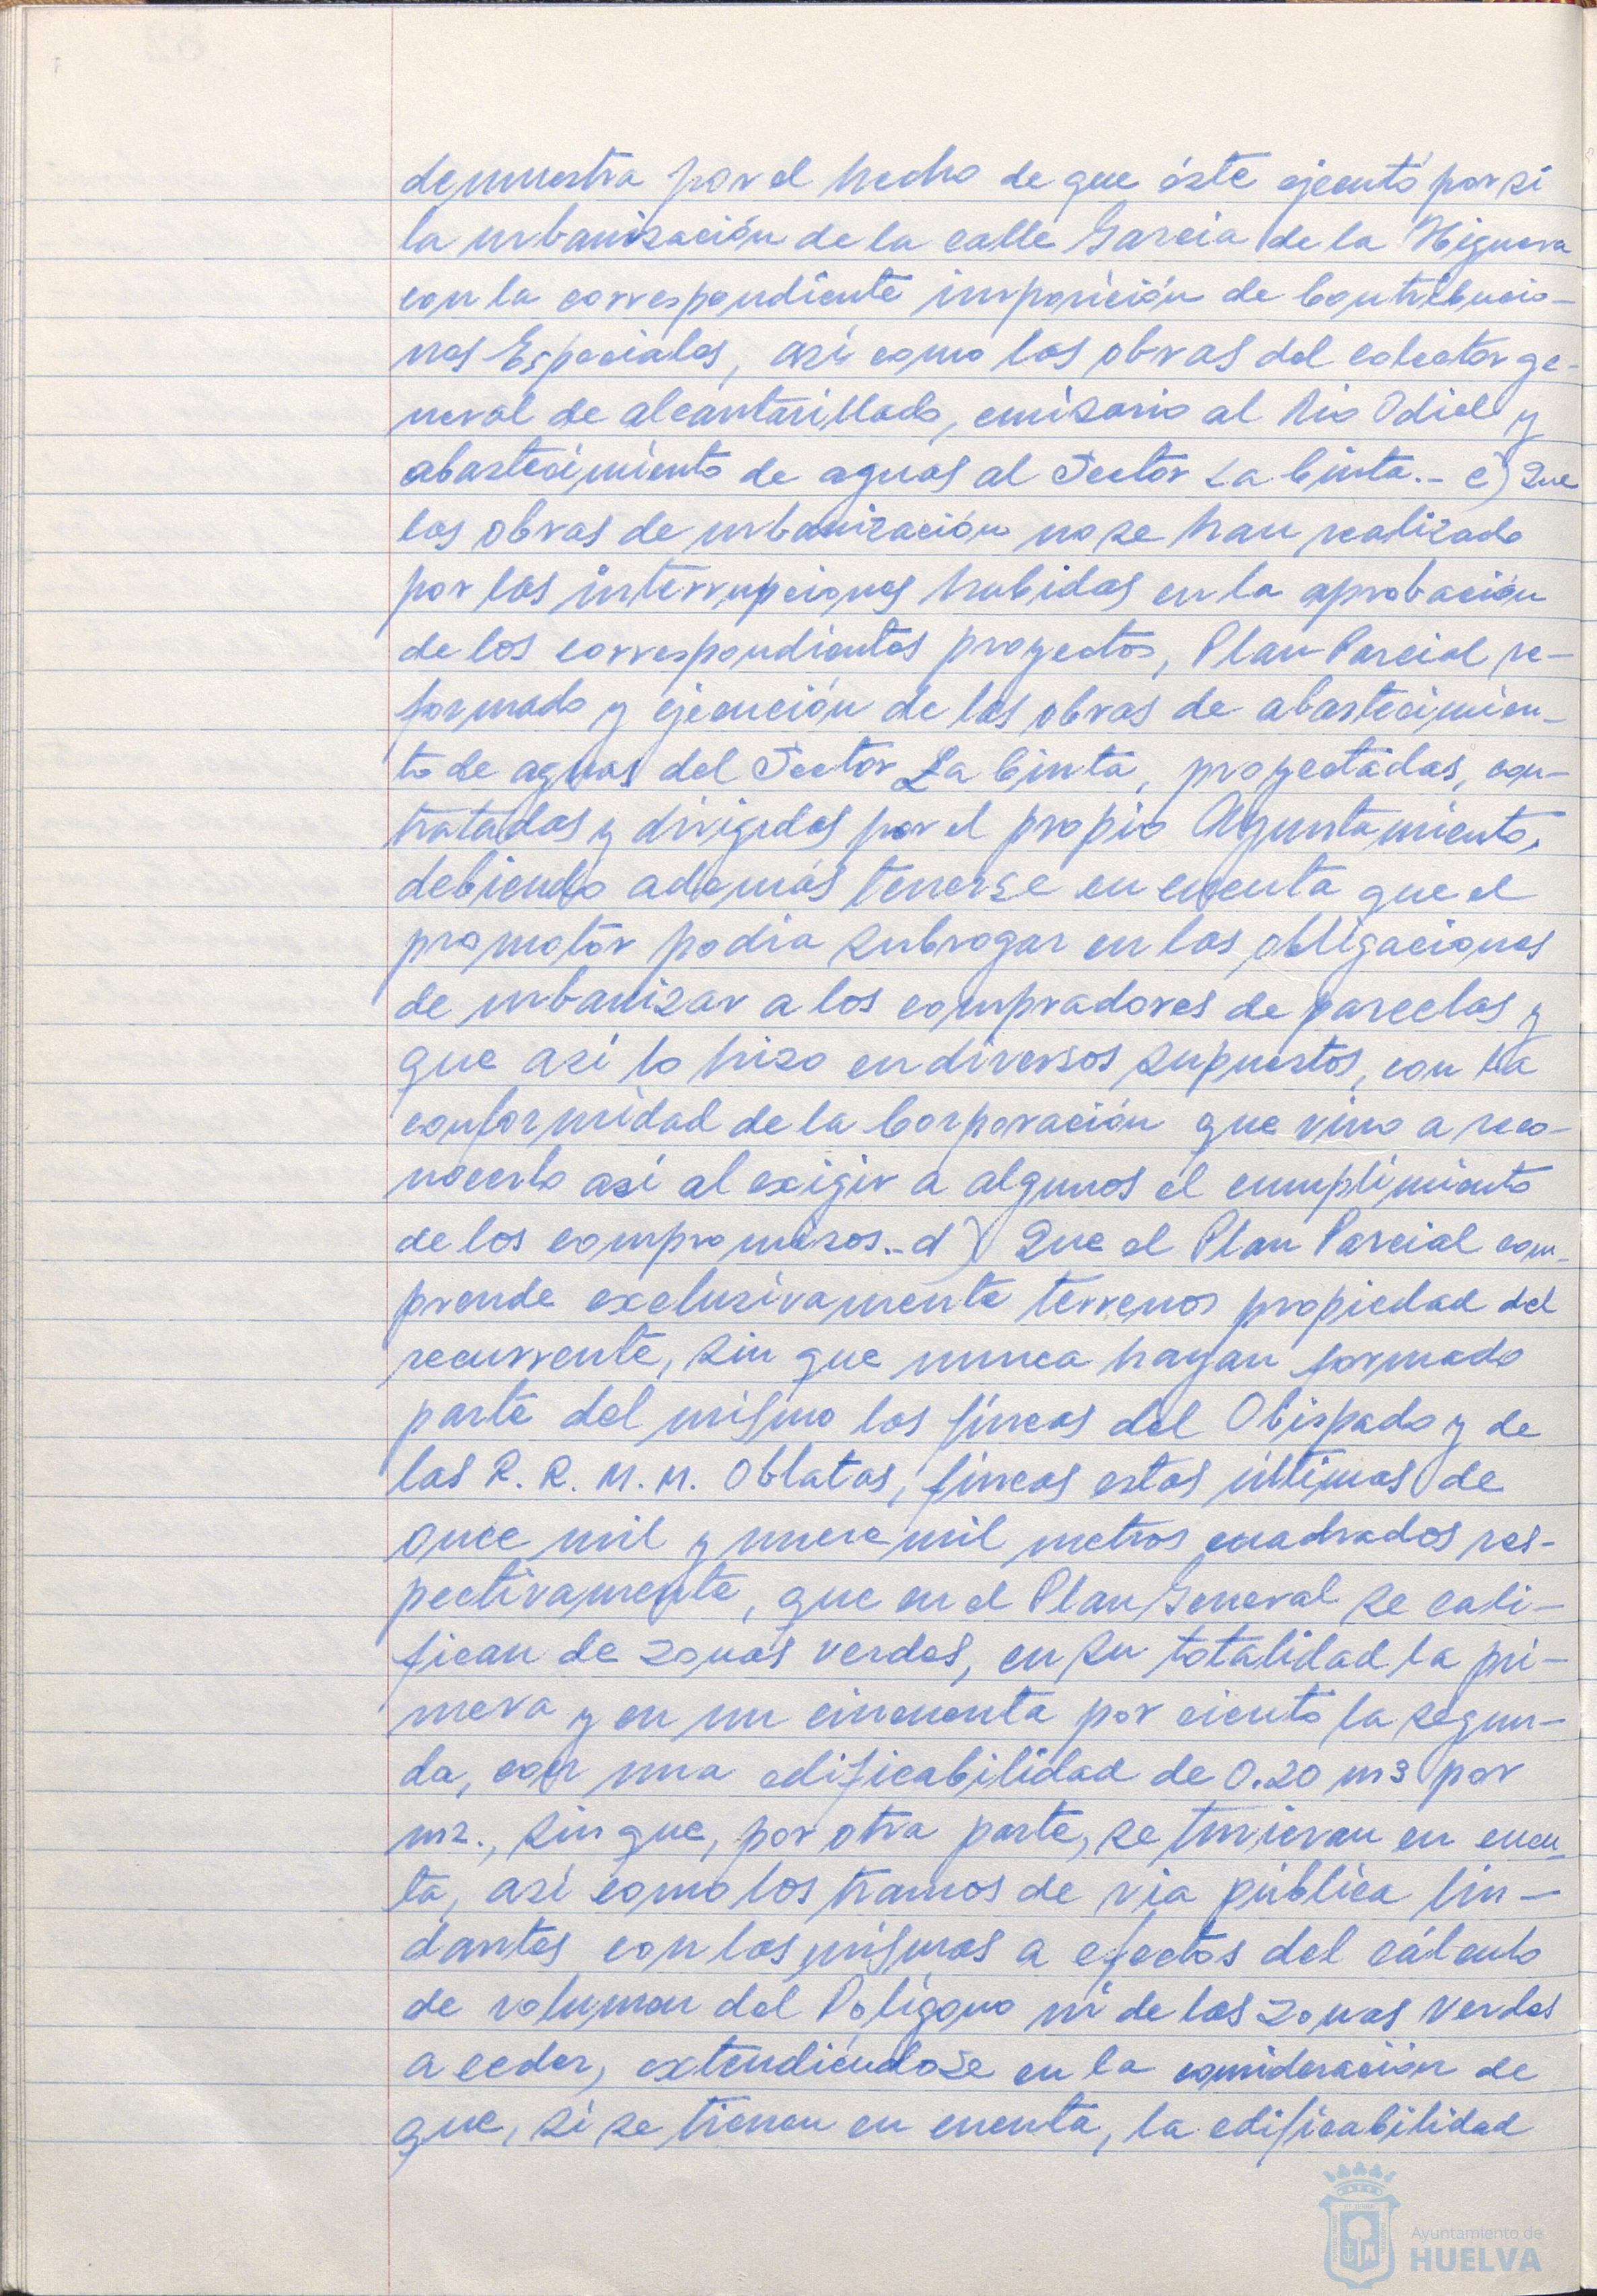 demuestra por el hecho de que éste ejecutó por si
la urbanización de la calle Garcia de la Higuera
con la correspondiente imposición de Contribucio-
nes Especiales, asi como las obras del colector ge-
neral de alcantarillado, emisario al Rio Odiel y
abastecimiento de aguas al Sector La Cinta.- c) Que
las obras de urbanización no se han realizado
por las interrupciones habidas en la aprobación
de los correspondientes proyectos, Plan Parcial re-
formado y ejecución de las obras de abastecimien-
to de aguas del Sector La Cinta, proyectadas, con-
tratadas y dirigidas por el propio Ayuntamiento,
debiendo además tenerse en cuenta que el
promotor podia subrogar en las obligaciones
de urbanizar a los compradores de parcelas y
que asi lo hizo en diversos supuestos, con la
conformidad de la Corporación que vino a reco-
nocerlo asi al exigir a algunos el cumplimiento
de los compromisos.- d) Que el Plan Parcial com-
prende exclusivamente terrenos propiedad del
recurrente, sin que nunca hayan formado
parte del mismo las fincas del Obispado y de
las R. R. M. M. Oblatas, fincas estas últimas de
once mil y nueve mil metros cuadrados res-
pectivamente, que en el Plan General se cali-
fican de zonas verdes, en su totalidad la pri-
mera y en un cincuenta por ciento la segun-
da, con una edificabilidad de 0.20 m3 por
m2., sin que, por otra parte, se tuvieran en cuen-
ta, asi como los tramos de via pública lin-
dantes con las mismas a efectos del cálculo
de volumen del Poligono ni de las zonas verdes
a ceder, extendiéndose en la consideración de
que, si se tienen en cuenta, la edificabilidad
Ayuntamiento de
HUELVA